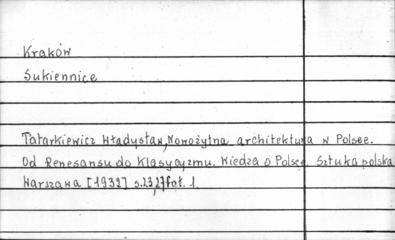 Kraków
Sukiennice
Tatarkiewicz Władysław, Nowożytna architektura w Polsce.
Od Renesansu do Klasycyzmu. Wiedza o Polsce Sztuka polska
Warszawa [1932] s.23,27 fot. 1.